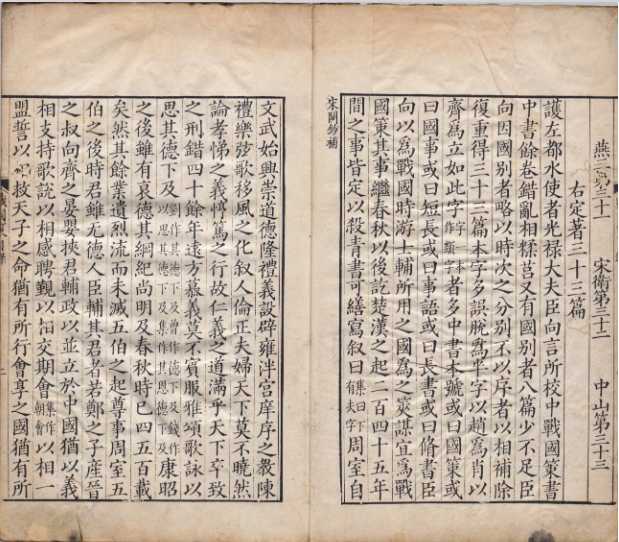 燕第三十一 宋衛第三十二 中山第三十三
右定著三十三篇
護左都水使者光祿大夫臣向言所校中戰國策書
中書餘卷錯亂相糅莒又有國別者八篇少不足臣
向因國別者略以時次之分別不以序者以相補除
復重得三十三篇本字多誤脫爲半字以趙爲肖以
齊爲立如此字一本作類字者多中書本號或曰國策或
曰國事或曰短長或曰事語或曰長書或曰脩書臣
向以爲戰國時游士輔所用之國爲之筴謀宜爲戰
國策其事繼春秋以後訖楚漢之起二百四十五年
間之事皆定以殺青書可繕寫叙曰集曰下有夫字周室自
宋闕鈔補
文武始興崇道德隆禮義設辟雍泮宮庠序之教陳
禮樂弦歌移風之化叙人倫正夫婦天下莫不曉然
論孝悌之義惇篤之行故仁義之道滿乎天下卒致
之刑錯四十餘年遠方慕義莫不賓服雅頌歌詠以
思其德下及劉作其德下及曾作德下及錢作以思其德下及集作其恩德下及康昭
之後雖有衰德其綱紀尚明及春秋時已四五百載
矣然其餘業遺烈流而未滅五伯之起尊事周室五
伯之後時君雖无德人臣輔其君者若鄭之子產晉
之叔向齊之晏嬰挾君輔政以並立於中國猶以義
相支持歌說以相感聘覲以相交期會集作朝會以相一
盟誓以相救天子之命猶有所行會享之國猶有所